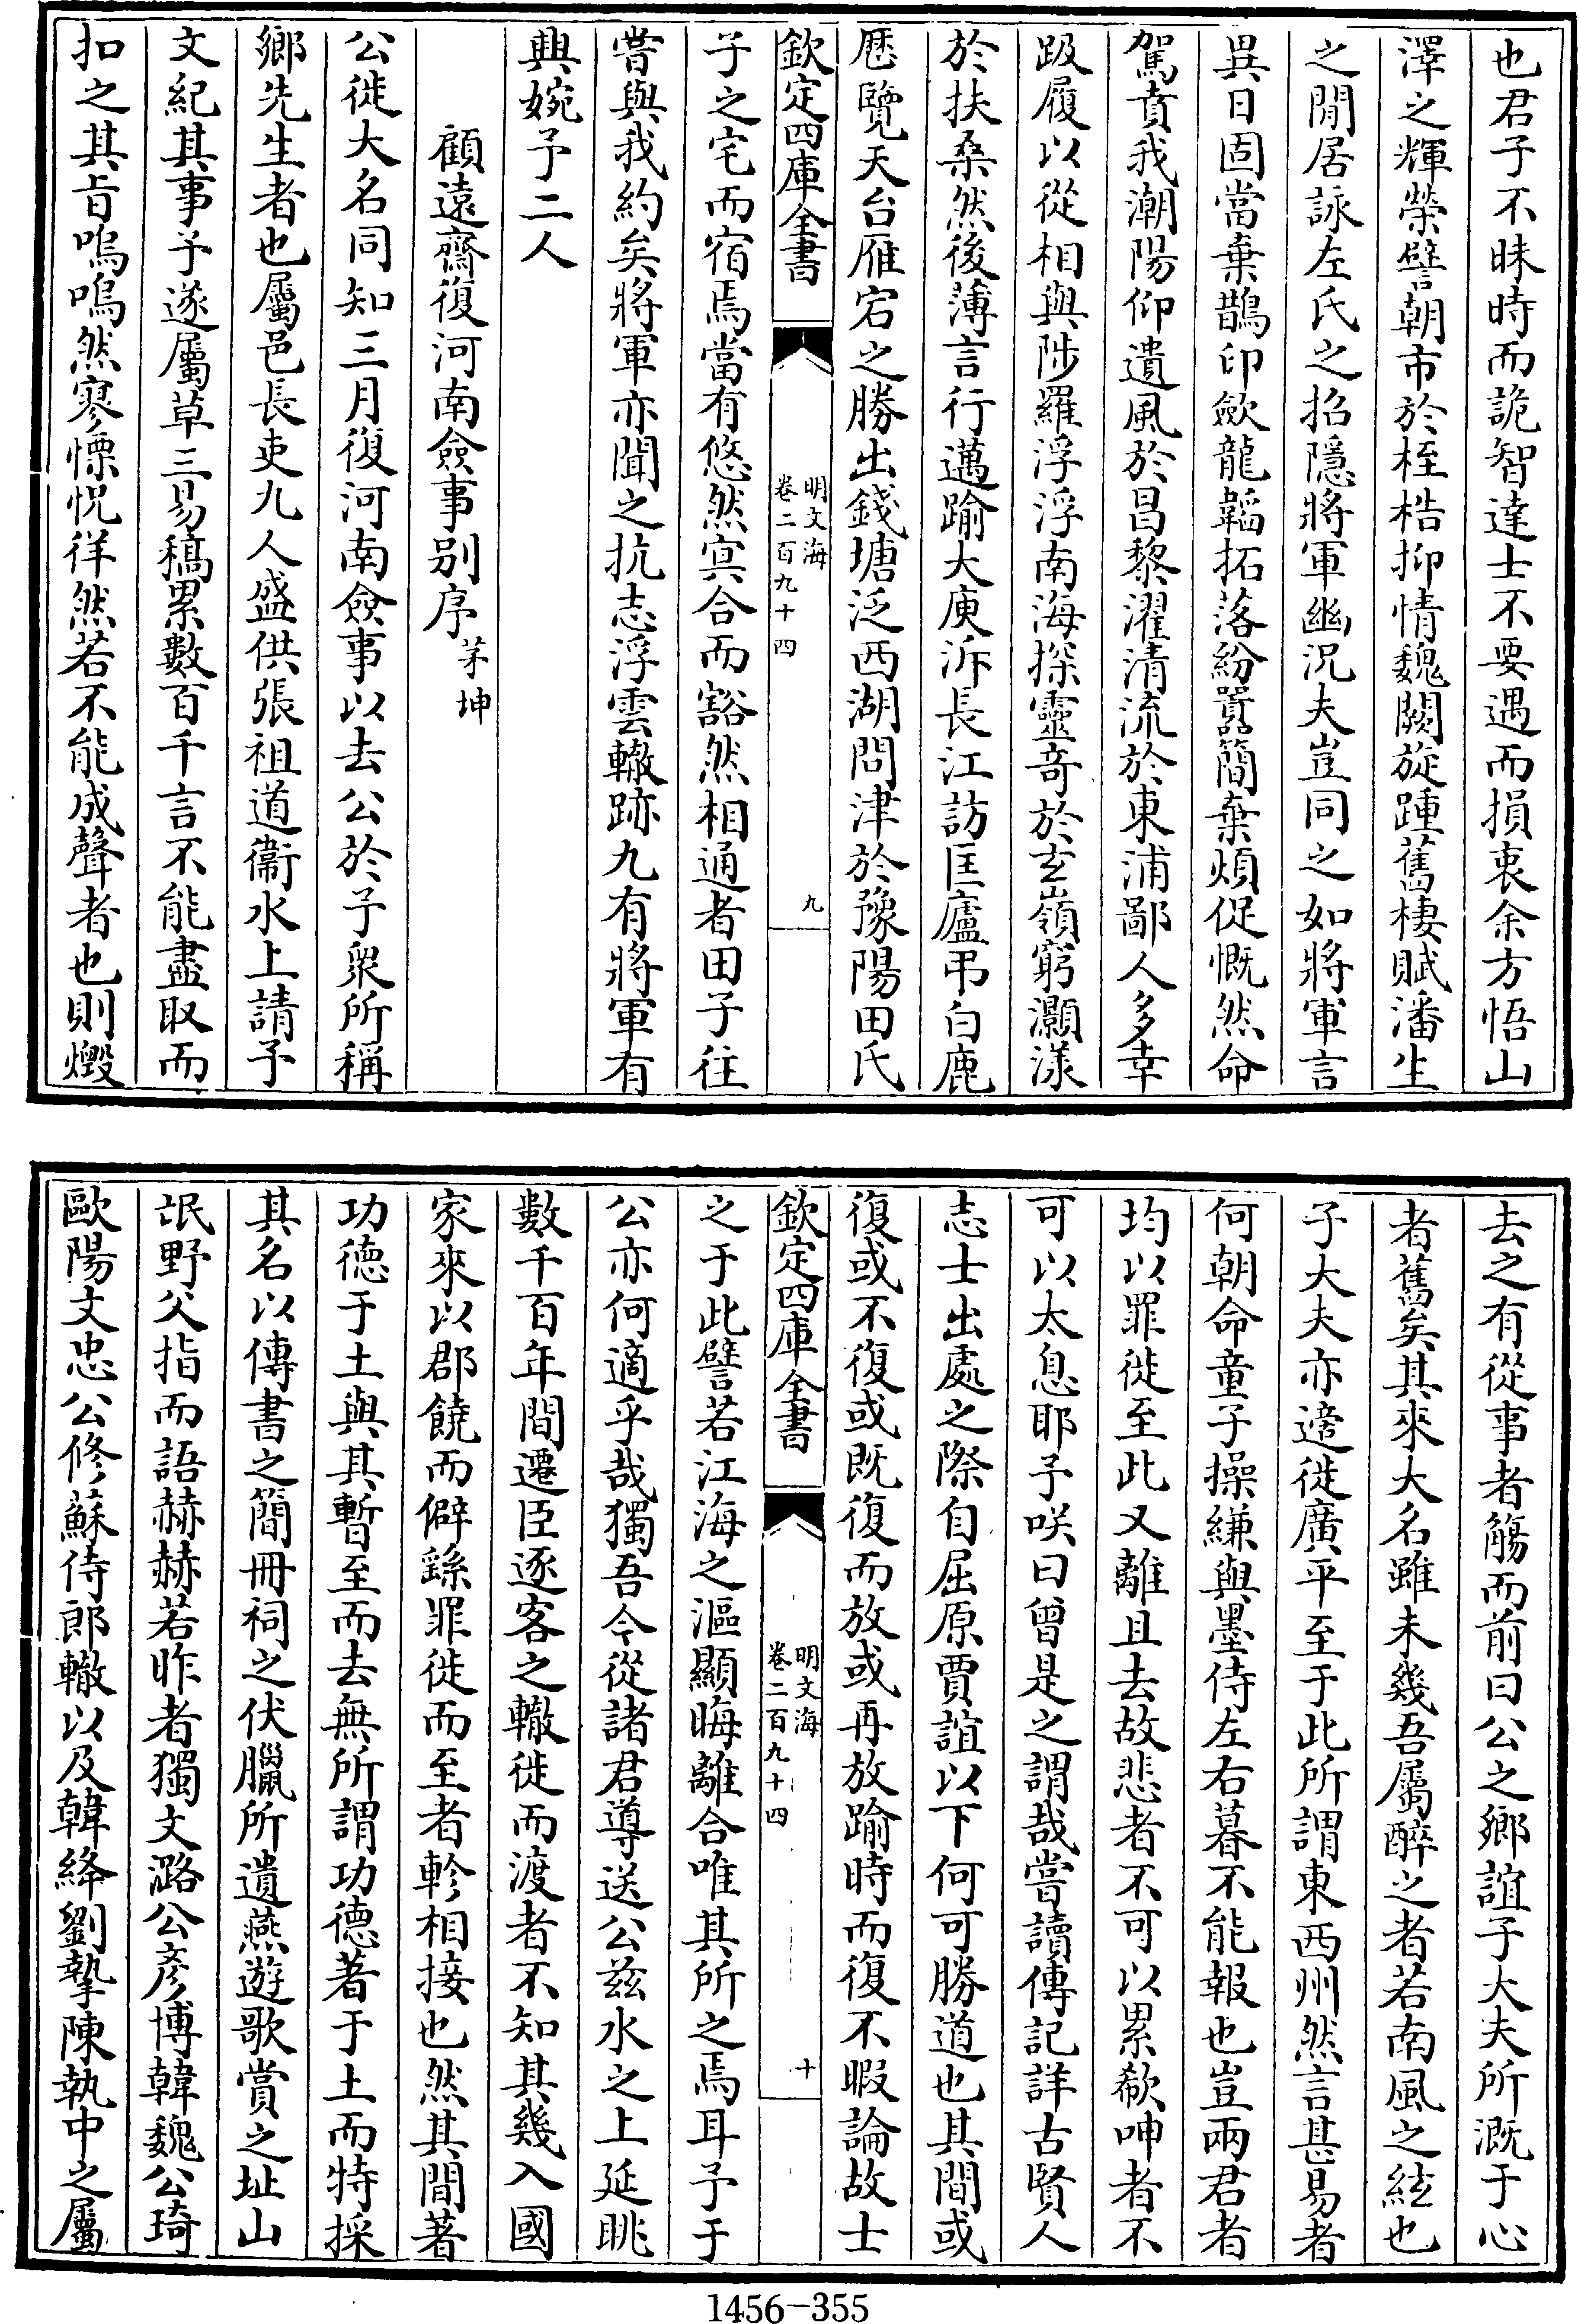 也君子不昧時而詭智達士不要遇而損衷余方悟山
澤之輝榮譬朝市於桎梏抑情魏闕旋踵舊棲賦潘生
之閒居詠左氏之招隱將軍幽況夫豈同之如將軍言
異日固當棄鵲印歛龍韜拓落紛囂簡棄煩促慨然命
駕賁我潮陽仰遺風於昌黎濯清流於東浦鄙人多幸
趿履以從相與陟羅浮浮南海探靈奇於玄嶺窮灝漾
於扶桑然後薄言行邁踰大庾泝長江訪匡廬弔白鹿
歷覽天台雁宕之勝出錢塘泛西湖問津於豫陽田氏
欽定四庫全書
明文海
卷二百九十四
九
子之宅而宿焉當有悠然㝠合而豁然相通者田子往
嘗與我約矣將軍亦聞之抗志浮雲轍跡九有將軍有
興婉予二人
顧遠齋復河南僉事別序 茅坤
公徙大名同知三月復河南僉事以去公於予衆所稱
鄉先生者也屬邑長吏九人盛供張祖道衞水上請予
文紀其事予遂屬草三易稿累數百千言不能盡取而
扣之其㫖嗚嗚然寥慄怳徉然若不能成聲者也則燬
去之有從事者觴而前曰公之鄉誼子大夫所溉于心
者舊矣其來大名雖未幾吾屬醉之者若南風之絃也
子大夫亦適徙廣平至于此所謂東西州然言甚易者
何朝命童子操縑與墨侍左右暮不能報也豈兩君者
均以罪徙至此又離且去故悲者不可以累欷呻者不
可以太息耶予咲曰曾是之謂哉嘗讀傳記詳古賢人
志士出處之際自屈原賈誼以下何可勝道也其間或
復或不復或既復而放或再放踰時而復不暇論故士
欽定四庫全書
明文海
卷二百九十四
十
之于此譬若江海之漚顯晦離合唯其所之焉耳予于
公亦何適乎哉獨吾今從諸君導送公兹水之上延眺
數千百年間遷臣逐客之轍徙而渡者不知其幾入國
家來以郡饒而僻繇罪徙而至者軫相接也然其間著
功德于土與其暫至而去無所謂功德著于土而特採
其名以傳書之簡冊祠之伏臘所遺燕遊歌賞之址山
氓野父指而語赫赫若昨者獨文潞公彦博韓魏公琦
歐陽文忠公修蘇侍郎轍以及韓絳劉摯陳執中之屬
1456-355